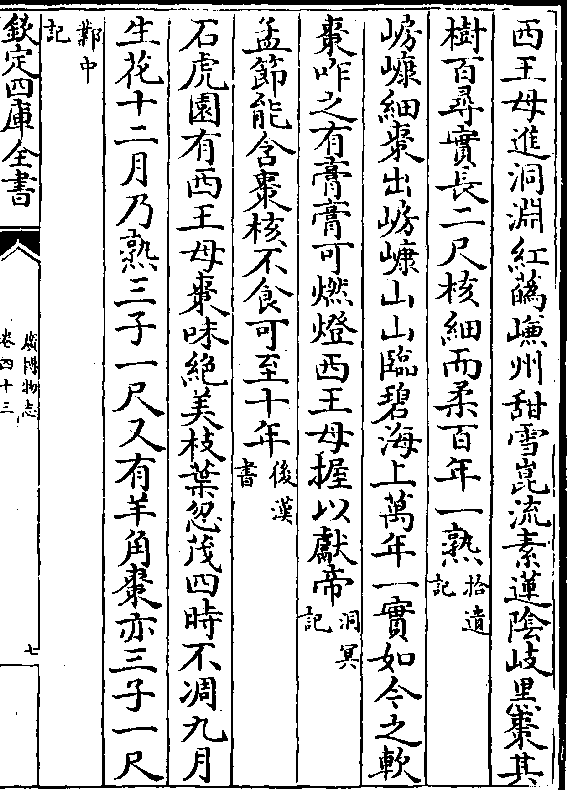 西王母進洞淵紅蘤嵰州甜雪崑流素蓮陰岐黒棗其
樹百尋實長二尺核細而柔百年一熟拾遺記
㟍嵻細棗出㟍嵻山山臨碧海上萬年一實如今之軟
棗咋之有膏膏可燃燈西王母握以獻帝洞冥記
孟節能含棗核不食可至十年後漢書
石虎園有西王母棗味絶美枝葉忽茂四時不凋九月
生花十二月乃熟三子一尺又有羊角棗亦三子一尺
鄴中記
欽定四庫全書
廣博物志
卷四十三
七